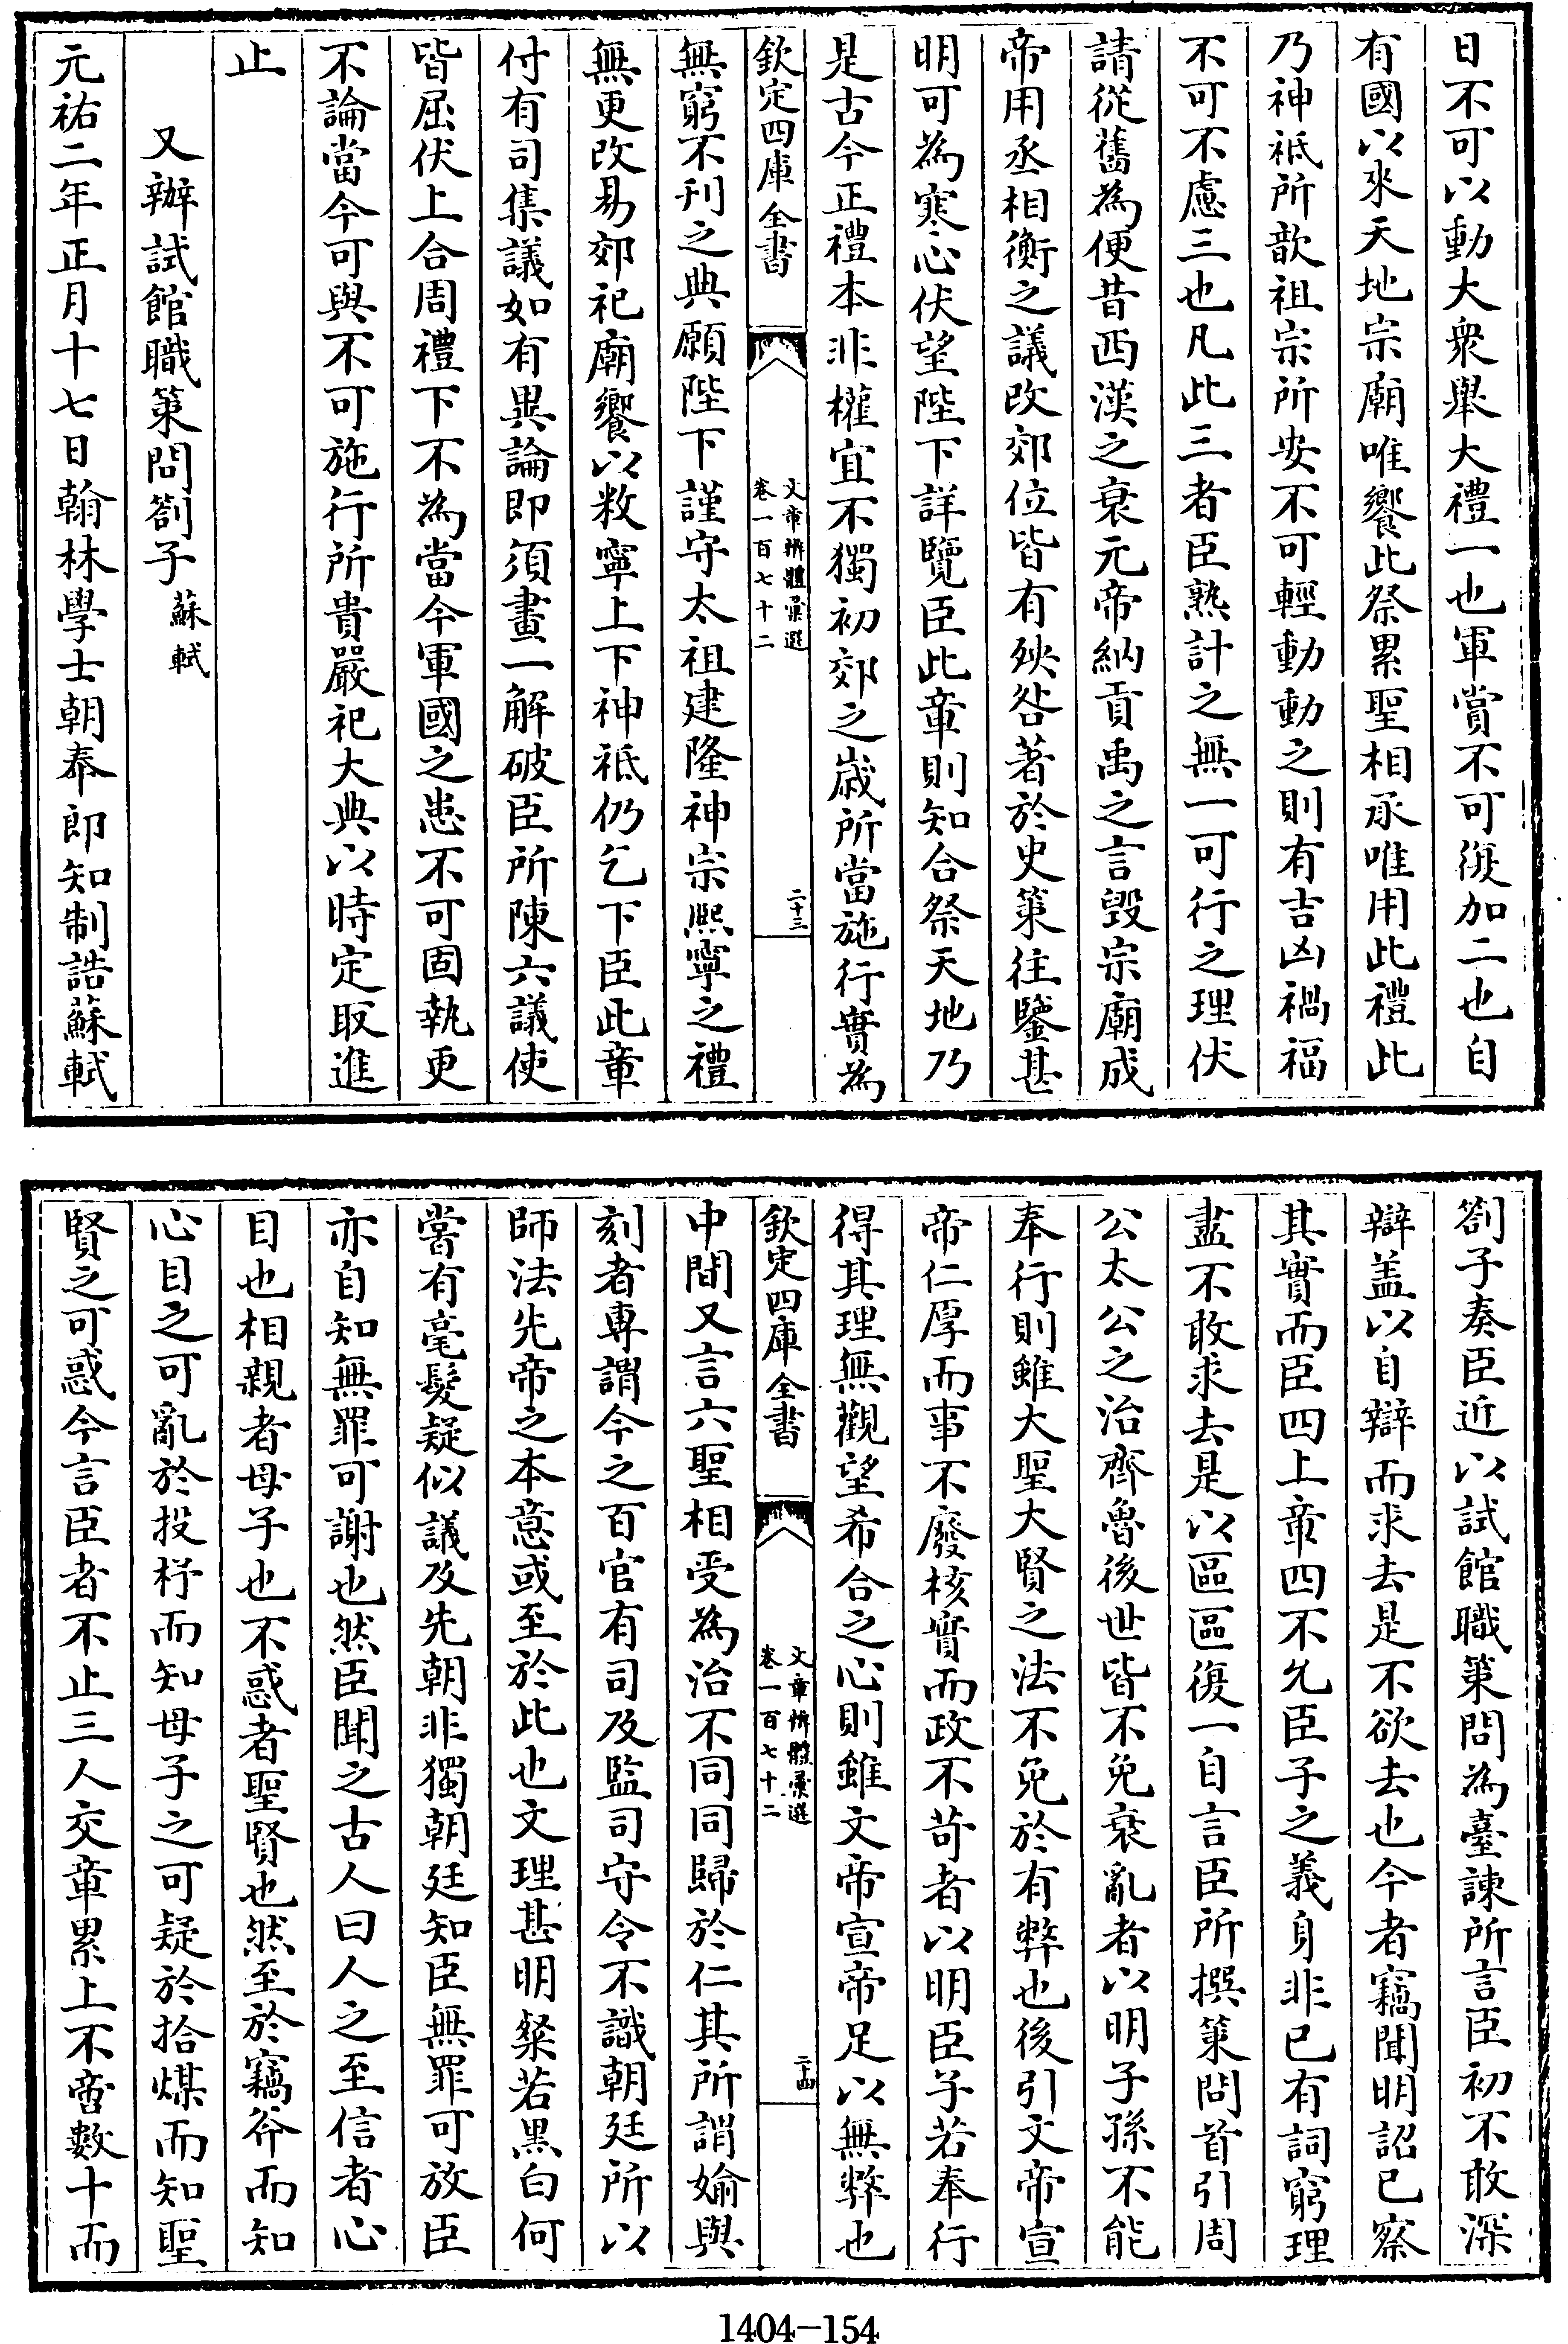 日不可以動大衆舉大禮一也軍賞不可復加二也自
有國以來天地宗廟唯饗此祭累聖相承唯用此禮此
乃神祗所歆祖宗所安不可輕動動之則有吉凶禍福
不可不慮三也凡此三者臣熟計之無一可行之理伏
請從舊為便昔西漢之衰元帝納貢禹之言毀宗廟成
帝用丞相衡之議改郊位皆有殃咎著於史策往鑒甚
明可為寒心伏望陛下詳覽臣此章則知合祭天地乃
是古今正禮本非權宜不獨初郊之歲所當施行實為
欽定四庫全書
文章辨體彙選
卷一百七十二
二十三
無窮不刊之典願陛下謹守太祖建隆神宗熙寧之禮
無更改易郊祀廟饗以敉寧上下神祗仍乞下臣此章
付有司集議如有異論即須畫一解破臣所陳六議使
皆屈伏上合周禮下不為當今軍國之患不可固執更
不論當今可與不可施行所貴嚴祀大典以時定取進
止
又辨試館職策問劄子蘇軾
元祐二年正月十七日翰林學士朝奉郎知制誥蘇軾
劄子奏臣近以試館職策問為臺諫所言臣初不敢深
辯盖以自辯而求去是不欲去也今者竊聞明詔已察
其實而臣四上章四不允臣子之義身非己有詞窮理
盡不敢求去是以區區復一自言臣所撰策問首引周
公太公之治齊魯後世皆不免衰亂者以明子孫不能
奉行則雖大聖大賢之法不免於有弊也後引文帝宣
帝仁厚而事不廢核實而政不苛者以明臣子若奉行
得其理無觀望希合之心則雖文帝宣帝足以無弊也
欽定四庫全書
文章辨體彙選
卷一百七十二
二十四
中間又言六聖相受為治不同同歸於仁其所謂媮與
刻者專謂今之百官有司及監司守令不識朝廷所以
師法先帝之本意或至於此也文理甚明粲若黑白何
嘗有毫髮疑似議及先朝非獨朝廷知臣無罪可放臣
亦自知無罪可謝也然臣聞之古人曰人之至信者心
目也相親者母子也不惑者聖賢也然至於竊斧而知
心目之可亂於投杼而知母子之可疑於拾煤而知聖
賢之可惑今言臣者不止三人交章累上不啻數十而
1404-154